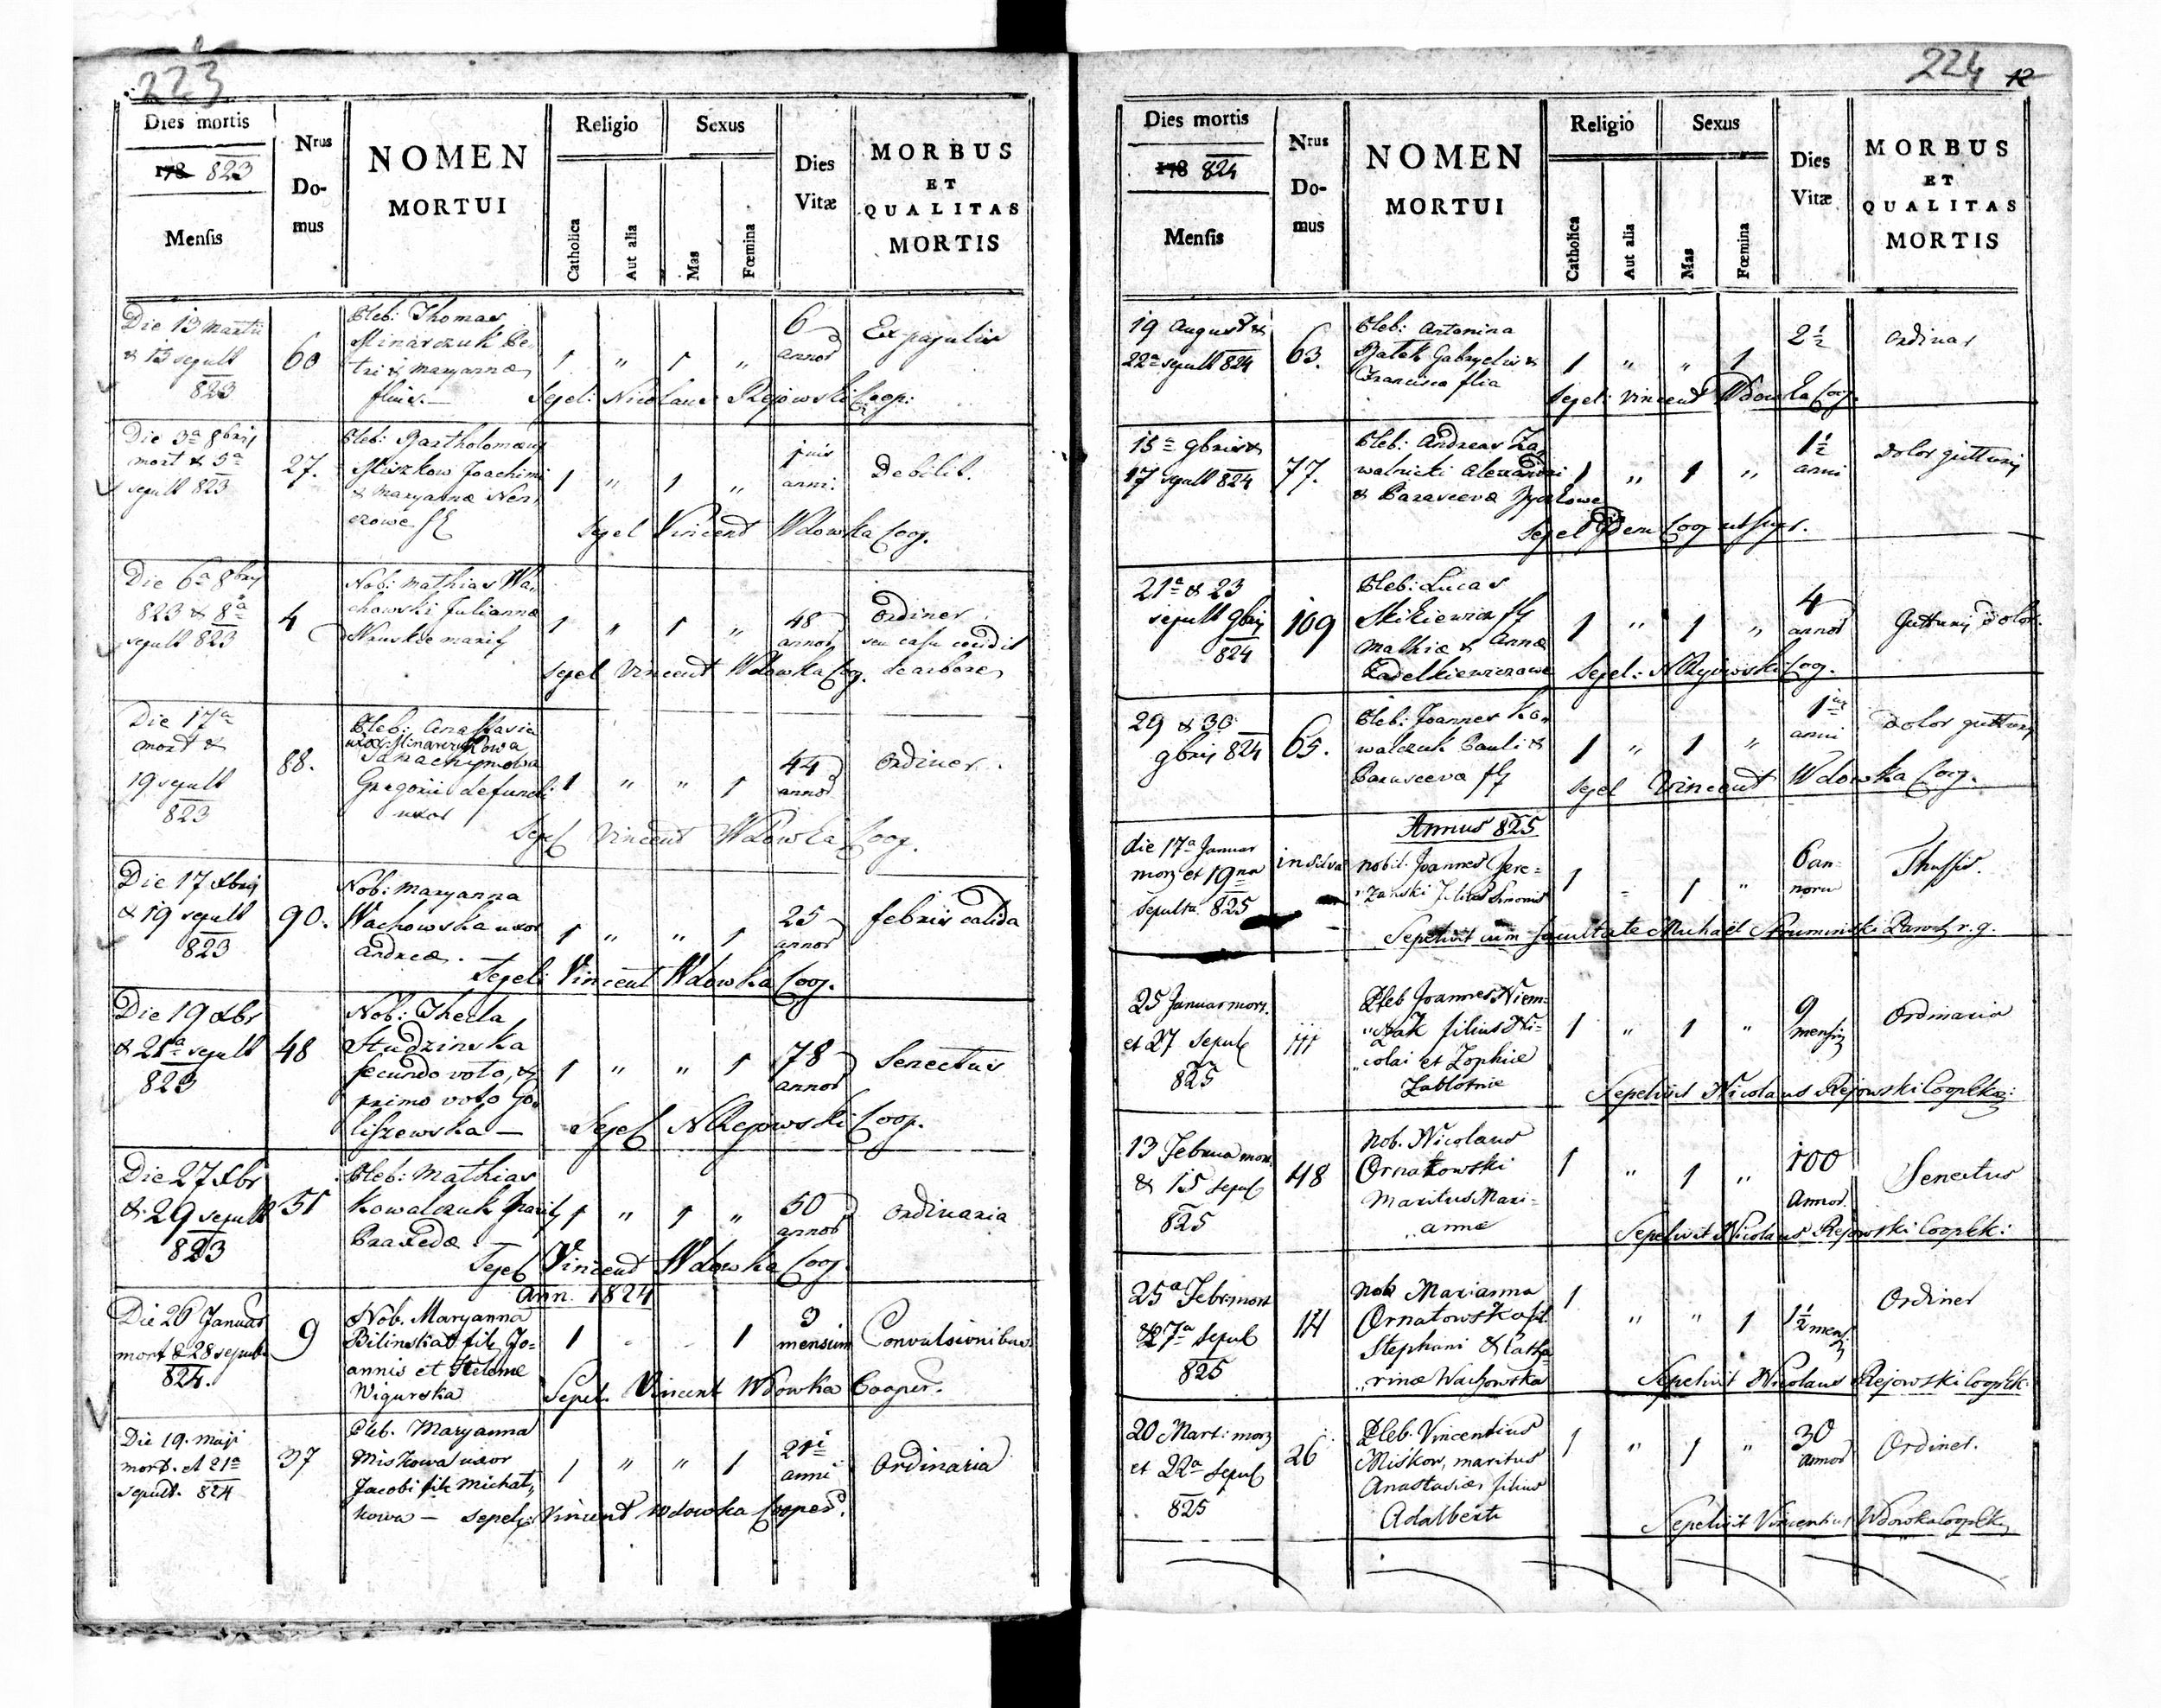 223
Dies mortis
178 823
Mensis
Nrus
Do-
mus
NOMEN
MORTUI
Religio
Catholica
Aut alia
Sexus
Mas
Fœmina
Dies
Vitæ
MORBUS
ET
QUALITAS
MORTIS
Die 13 Martii
& 15 sepult
823
60
Pleb: Thomas
Mlinarczuk Pe-
tri & Maryannæ
filius.
1 " 1 "
6
annor
Ex papulis
Sepel: Nicolaus Rejowski Coop:
Die 3a 8bris
mort & 5a
sepult 823
27.
Pleb: Bartholomæus
Miszkow Joachimi
& Maryannæ
1 " 1 "
anni.
Debilit.
Sepel Vincent Wdowka Coop.
Die 6a 8bris
823 & 8a
sepult 823
4
Nob: Mathias Wa-
chowski Juliannæ
1 " 1 "
48
annor
Ordiner
seu casu cecidit
de arbore
Sepel Vincent Wdowka Coop.
Die 17a
mort &
19 sepult
823
88.
Pleb: Anastasia
Mlinarczukowa
Gregorii defuncti
uxor
1 " " 1
44
annor
Ordiner.
Sepel Vincent Wdowka Coop.
Die 17 Xbris
& 19 sepult
823
90.
Nob: Maryanna
Wachowska uxor
Andreæ.
1 " " 1
25
annor
febris calida
Sepel: Vincent Wdowka Coop.
Die 19 Xbr
& 21a sepult
823
48
Nob: Thecla
Studzinska
secundo voto, &
primo voto Go-
liszewska —
1 " " 1
78
annor
Senectus
Sepel N Rejowski Coop.
Die 27 Xbr
& 29 sepult
823
51
Pleb: Mathias
Kowalczuk
Praxedæ
1 " 1 "
50
annor
Ordinaria
Sepel Vincent Wdowka Coop.
Ann. 1824
Die 26 Januar
mort & 28 sepult
824.
9
Nob. Maryanna
Bilinska fil. Jo-
annis et Helenæ
Wigurska
1 1
3
mensium
Convulsionibus
Sepel. Vincent Wdowka Cooper.
Die 19. Maji
mort. et 21a
sepult. 824
37
Pleb. Maryanna
Miskowa uxor
Jacobi fil. Michal-
kowa —
1 " " 1
21
anni
Ordinaria
Sepel: Vincent Wdowka Cooper.
224 12
Dies mortis
178 824
Mensis
Nrus
Do-
mus
NOMEN
MORTUI
Religio
Catholica
Aut alia
Sexus
Mas
Fœmina
Dies
Vitæ
MORBUS
ET
QUALITAS
MORTIS
19 August &
22a sepult 824
63.
Pleb: Antonina
Batek Gabryelis &
Francisca filia
1 " " 1
2½
Ordinar
Sepel: Vincent Wdowka Coop.
15a 9bris &
17 sepult 824
77.
Pleb: Andreas Za-
walnicki Alexandri
& Parascevæ
1 " 1 "
1½
anni
Dolor gutturis
Sepel Idem Coop ut supr.
21a & 23
sepult 9bris
824
109
Pleb: Lucas
Skikiewicz
Mathiæ & Annæ
1 " 1 "
4
annor
Gutturis dolor.
Sepel: N Rejowski Coop.
29 & 30
9bris 824
65.
Pleb: Joannes Ko-
walczuk Pauli &
Parascevæ
1 " 1 "
anni
Dolor gutturis
Sepel Vincent Wdowka Coop.
Annus 825
die 17a Januar
mor et 19na
Sepultu. 825
in silva
nobil. Joannes Jere-
"zanski filius Simonis
1 1 "
6 an-
norum
Thussis.
Sepelivit cum facultate Michaël Struminski Paroch r.g.
25 Januar mort.
et 27 Sepul
825
111
Pleb Joannes Niem-
"czak filius Ni-
"colai et Zophiæ
Zablotnie
1 " 1 "
9
mensis
Ordinaria
Sepelivit Nicolaus Rejowski
13 Februa mort
& 15 Sepul
825
48
Nob. Nicolaus
Ornatowski
Maritus Mari-
"annæ
1 " 1 "
100
Annor.
Senectus
Sepelivit Nicolaus Rejowski
25a Febr: mort
& 27a Sepul
825
14
Nob Marianna
Ornatowska fil
Stephani & Catha-
"rinæ Wachowska
1 " " 1
1½ mens
Ordiner
Sepelivit Nicolaus Rejowski
20 Mart: mor
et 22a Sepul
825
26
Pleb. Vincentius
Miśkow, maritus
Anastasiæ, filius
Adalberti
1 " 1 "
30
annor
Ordiner.
Sepelivit Vincentius Wdowka